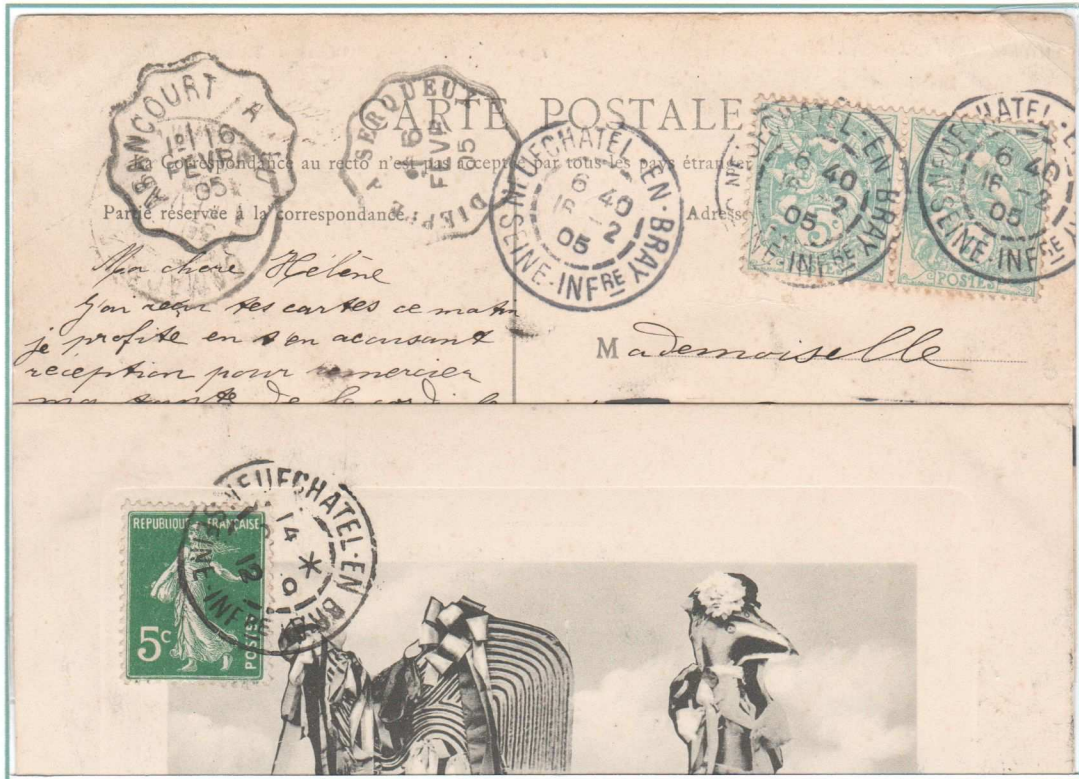 CARTE POSTALE
La Correspondance au recto n'est pas acceptée par tous les pays étranger
Partie réservée à la correspondance. Adresse
ABANCOURT A
16
FEVR
05
SERQUEUX A DIEPPE
16
FEVR
05
NEUFCHATEL-EN-BRAY
6 40
16 - 2
05
SEINE-INFRE
NEUFCHATEL-EN-BRAY
6 40
16 2
05
SEINE-INFRE
5c
NEUFCHATEL-EN-BRAY
6 40
16 - 2
05
SEINE-INFRE
POSTES
Ma chere Hélène
J'ai reçu tes cartes ce matin
je profite en t'en acousant
réception pour remercier
ma tante de la
Mademoiselle
REPUBLIQUE FRANÇAISE
5c
POSTES
NEUFCHATEL-EN BRAY
14 *
12
SEINE-INFRE